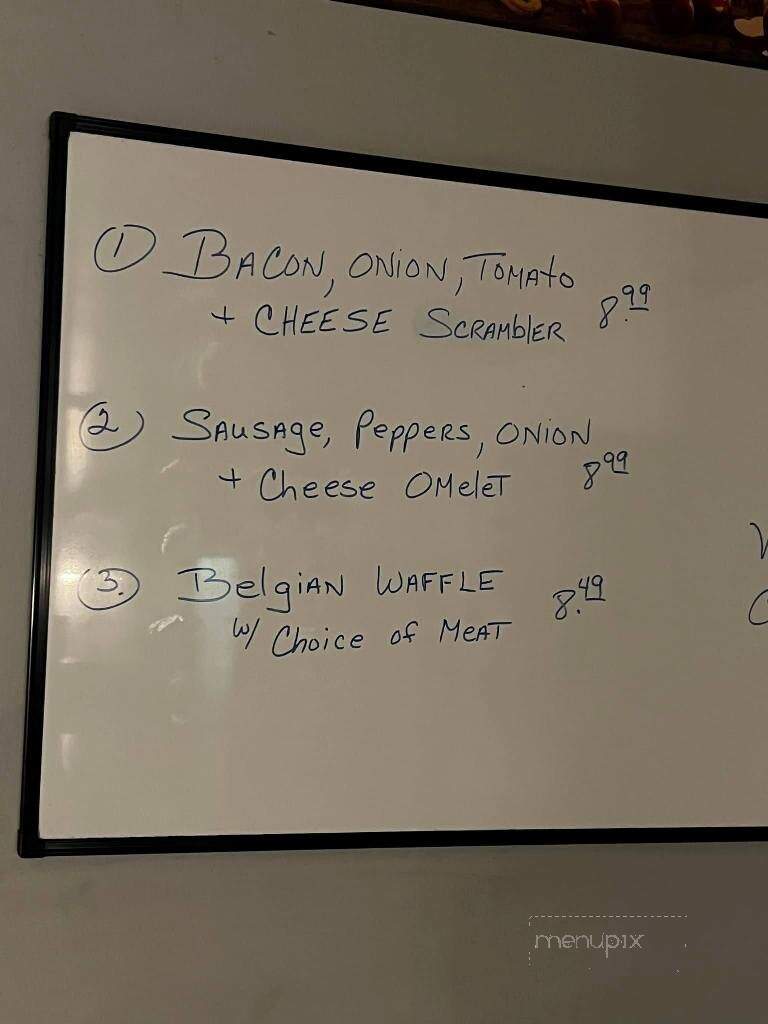 1 BACON, ONION, TOMATO
+ CHEESE SCRAMBLER 8.99
2 SAUSAGE, PEPPERS, ONION
+ Cheese OMELET 8.99
3. Belgian WAFFLE 8.49
w/ Choice of MEAT
menupix